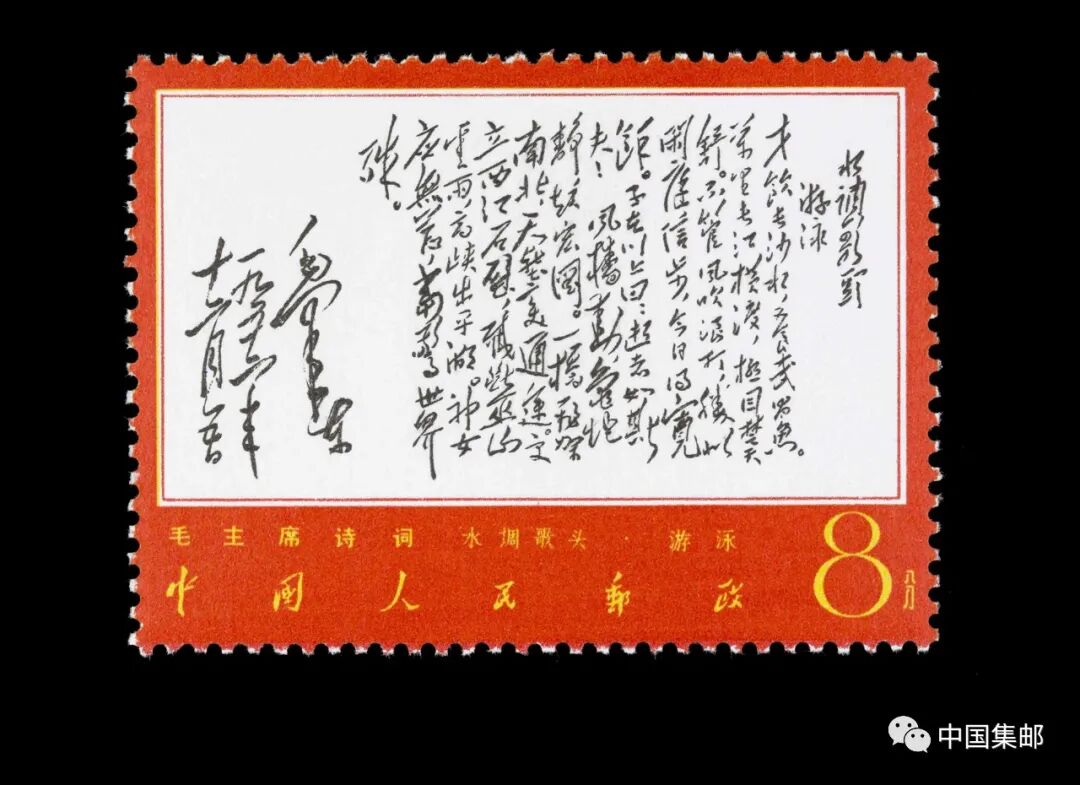 水调歌头
游泳
才饮长沙水,又食武昌鱼。
万里长江横渡,极目楚天
舒。不管风吹浪打,胜似
闲庭信步,今日得宽
馀。子在川上曰:逝者如斯
夫! 风樯动,龟蛇
静,起宏图。一桥飞架
南北,天堑变通途。更
立西江石壁,截断巫山
云雨,高峡出平湖。神女
应无恙,当惊世界
殊。
毛泽东
一九五六年
十二月五日
毛主席诗词 水调歌头·游泳
中國人民郵政
8分
中国集邮